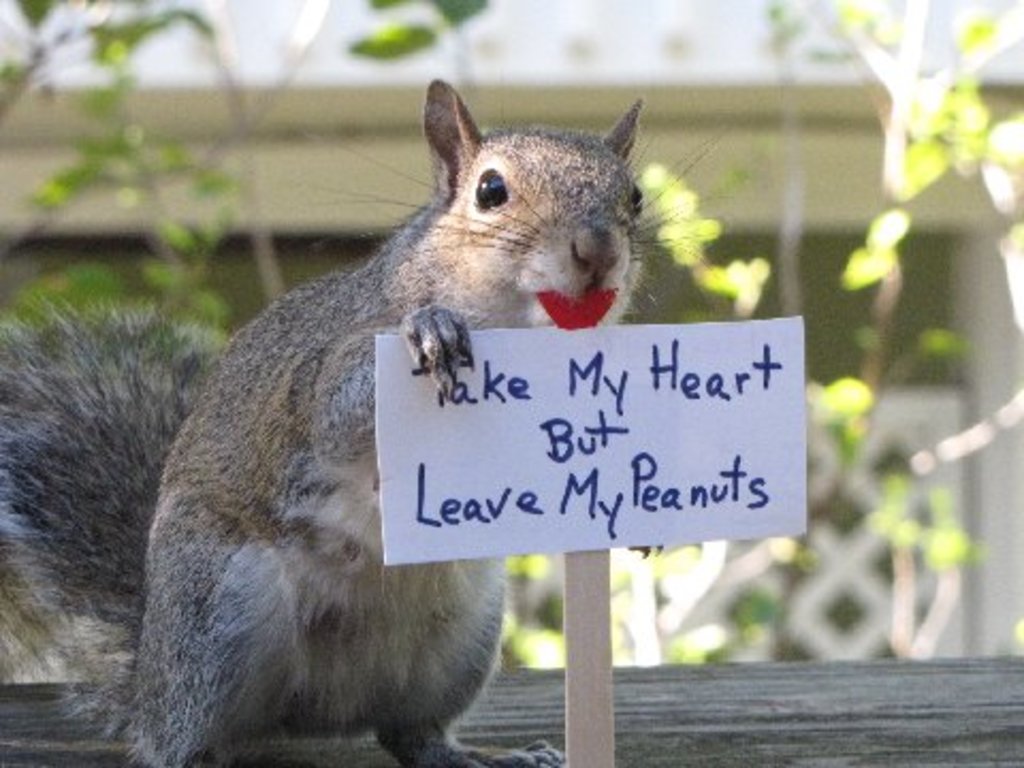 Take My Heart
But
Leave My Peanuts